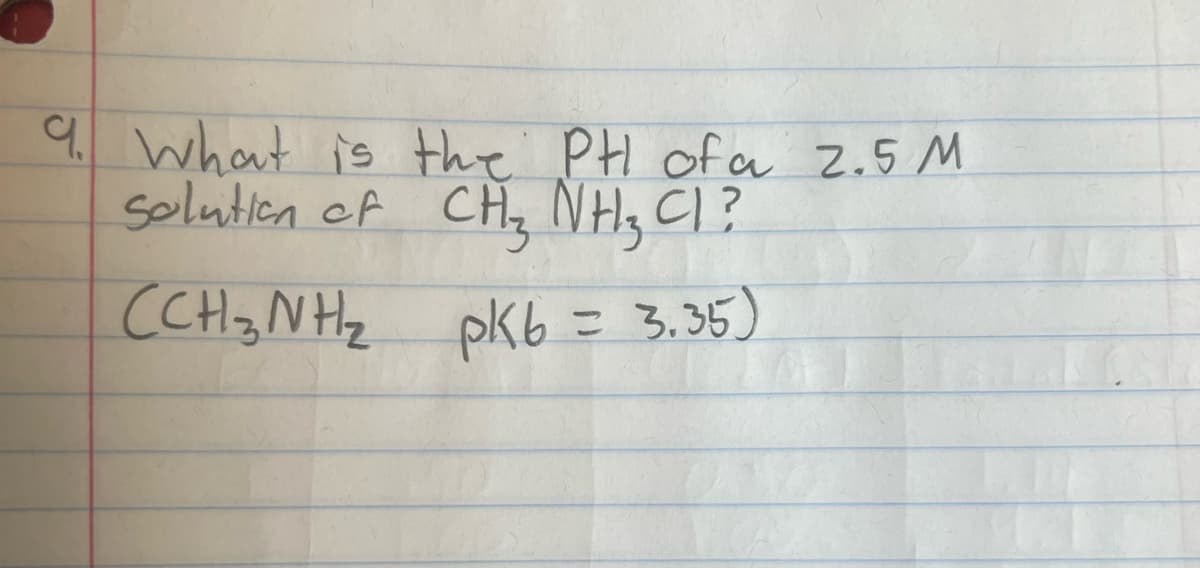 9. What is the PH of a 2.5 M
solution of CH₃ NH₃ Cl?
(CH₃NH₂ pKb = 3.35)